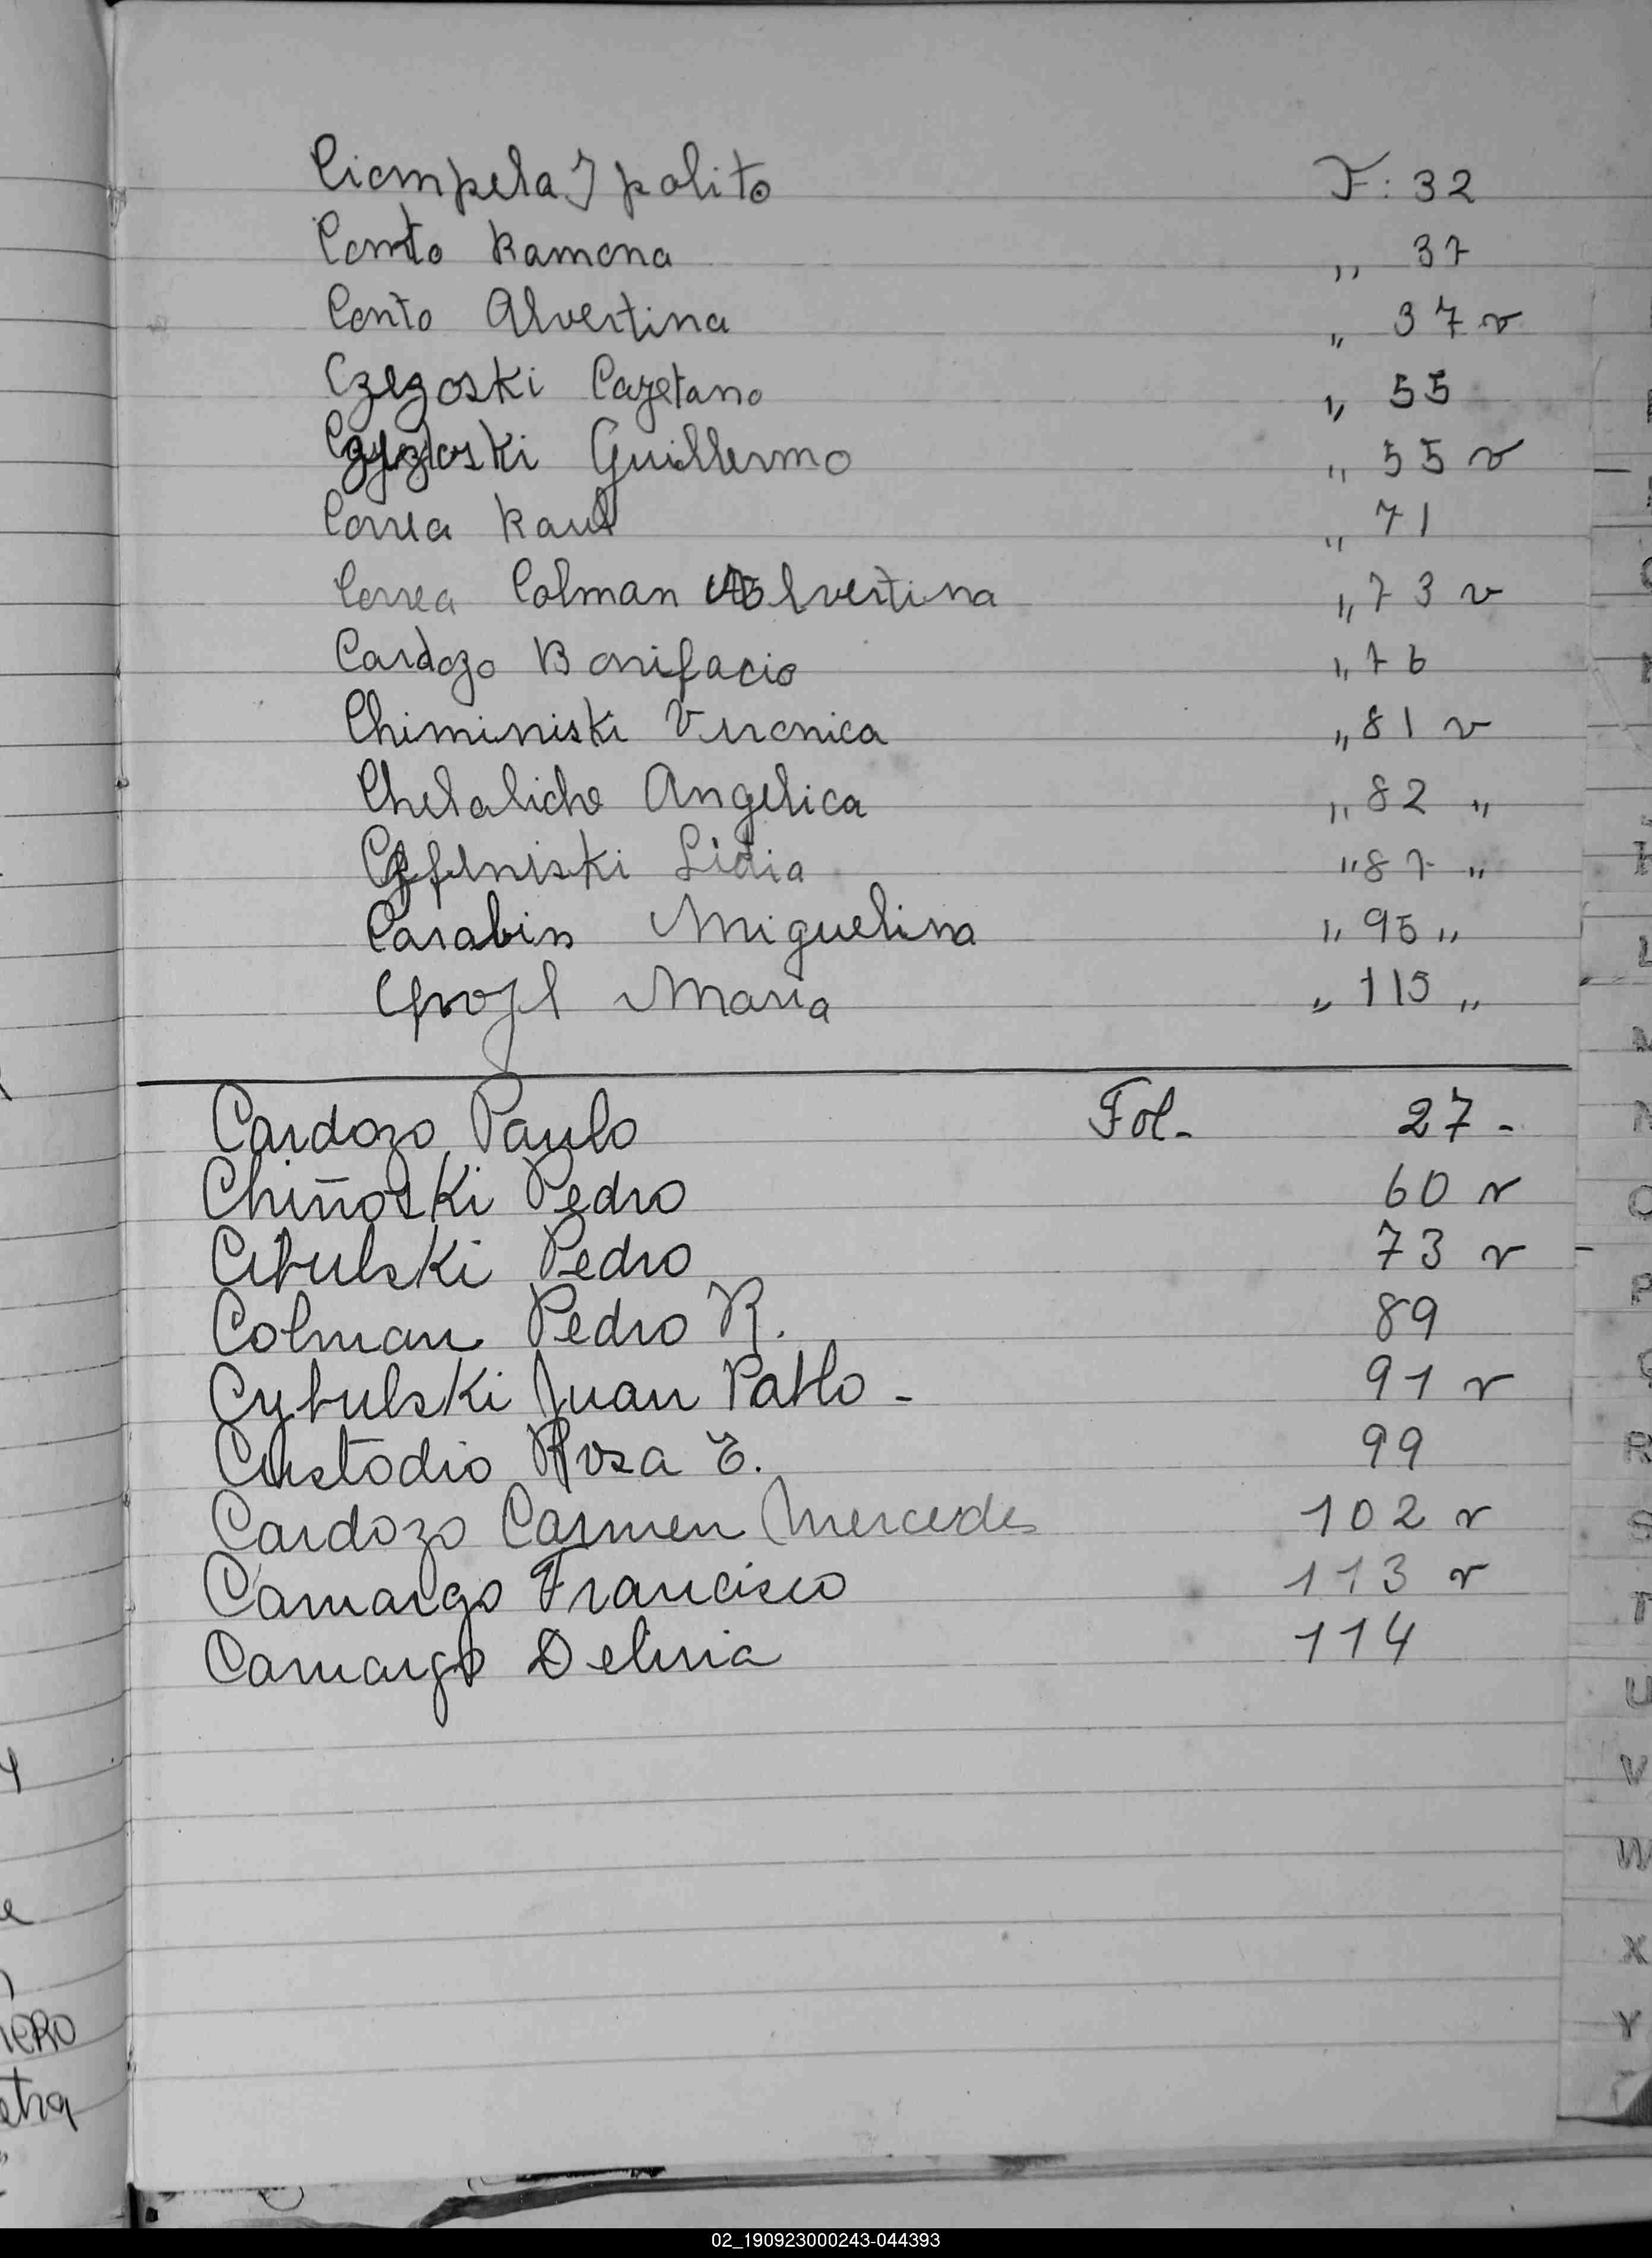 Ciampela Ipolito F: 32
Conto Ramona ,, 37
Conto Alvertina ,, 37 v
Czezoski Cazetano ,, 55
Guillermo ,, 55 v
Correa Raul ,, 71
Correa Colman Alvertina ,, 73 v
Cardozo Bonifacio ,, 76
Chiminiski Veronica ,, 81 v
Chelaliche Angelica ,, 82 ,,
Lidia ,, 87 ,,
Carabin Miguelina ,, 95 ,,
Maria ,, 115 ,,
Cardozo Paulo Fol- 27-
Chiñoski Pedro 60 v
Cibulski Pedro 73 v
Colman Pedro R. 89
Cybulski Juan Pablo - 91 v
Custodio Rosa E. 99
Cardozo Carmen Mercedes 102 v
Camargo Francisco 113 v
Camargo Delina 114
L
M
N
O
P
Q
R
S
T
U
V
W
X
Y
02_190923000243-044393